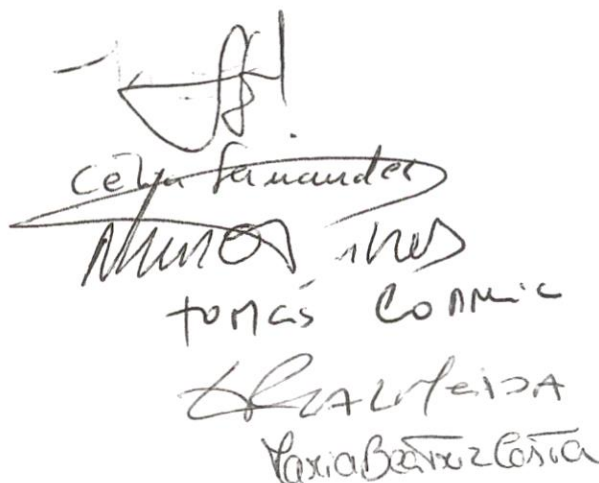 Célia Fernandes
Nuno Pires
Tomás Correia
Almeida
Maria Beatriz Costa